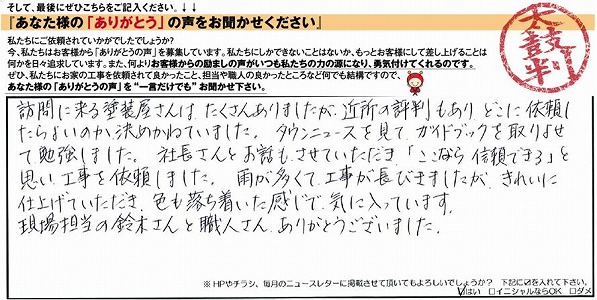 そして、最後にぜひこちらをご記入ください。↓↓
『あなた様の「ありがとう」の声をお聞かせください』
太鼓判
私たちにご依頼されていかがでしたでしょうか?
今、私たちはお客様から「ありがとうの声」を募集しています。私たちにしかできないことはないか、もっとお客様にして差し上げることは
何かを日々追求しています。また、何よりお客様からの励ましの声がいつも私たちの力の源になり、勇気付けてくれるのです。
ぜひ、私たちにお家の工事を依頼されて良かったこと、担当や職人の良かったところなど何でも結構ですので、
あなた様の「ありがとうの声」を“一言だけでも”お聞かせ下さい。
訪問に来る塗装屋さんは、たくさんありましたが、近所の評判もあり、どこに依頼し
たらよいのか、決めかねていました。タウンニュースを見て、ガイドブックを取りよせ
て勉強しました。社長さんとお話もさせていただき「ここなら信頼できる」と
思い工事を依頼しました。雨が多くて工事が長びきましたが、きれいに
仕上げていただき、色も落ち着いた感じで、気に入っています。
現場担当の鈴木さんと職人さん、ありがとうございました。
※HPやチラシ、毎月のニュースレターに掲載させて頂いてもよろしいでしょうか? 下記に☑を入れて下さい。
☑はい □イニシャルならOK □ダメ